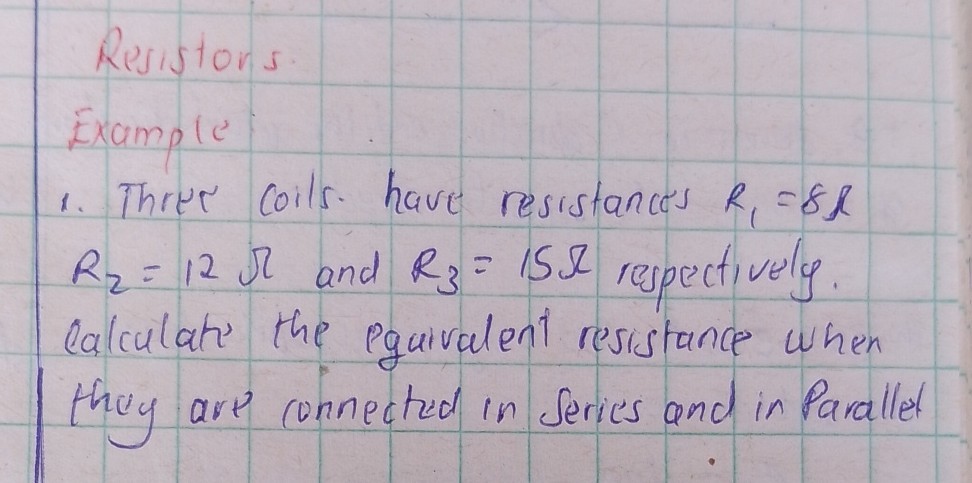 Resistors.
Example
1. Three Coils. have resistances R₁ = 8Ω
R₂ = 12 Ω and R₃ = 15Ω respectively.
Calculate the equivalent resistance when
they are connected in Series and in Parallel